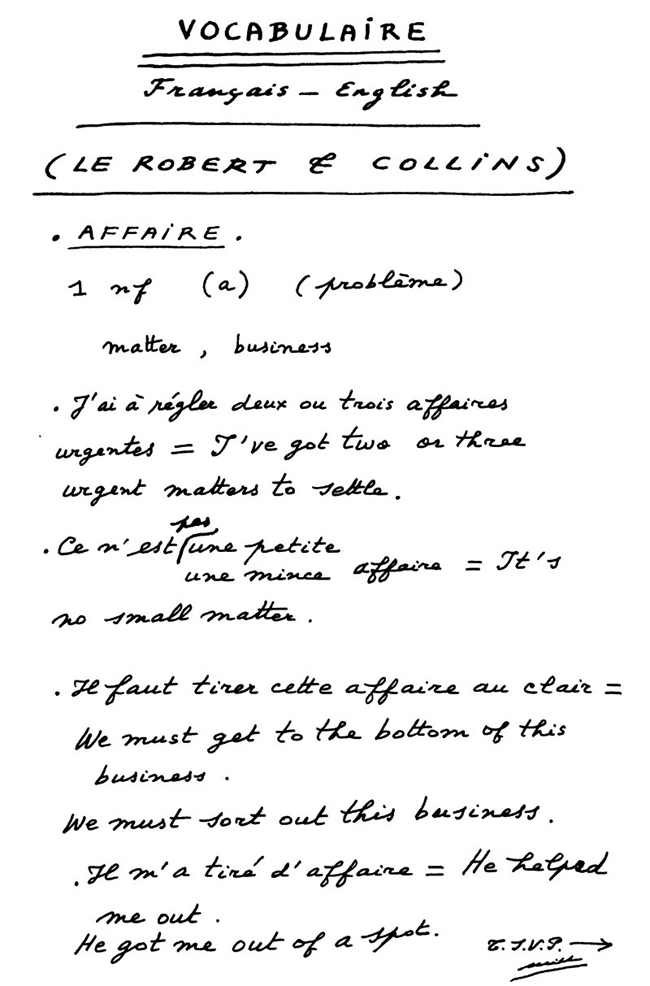 VOCABULAIRE
Français – English
(LE ROBERT & COLLINS)
. AFFAIRE .
1 nf (a) (problème)
matter , business
. J'ai à régler deux ou trois affaires
urgentes = I've got two or three
urgent matters to settle .
pas
. Ce n'est une petite
une mince affaire = It's
no small matter .
. Il faut tirer cette affaire au clair =
We must get to the bottom of this
business .
We must sort out this business .
. Il m'a tiré d'affaire = He helped
me out .
He got me out of a spot .
T.S.V.P. →